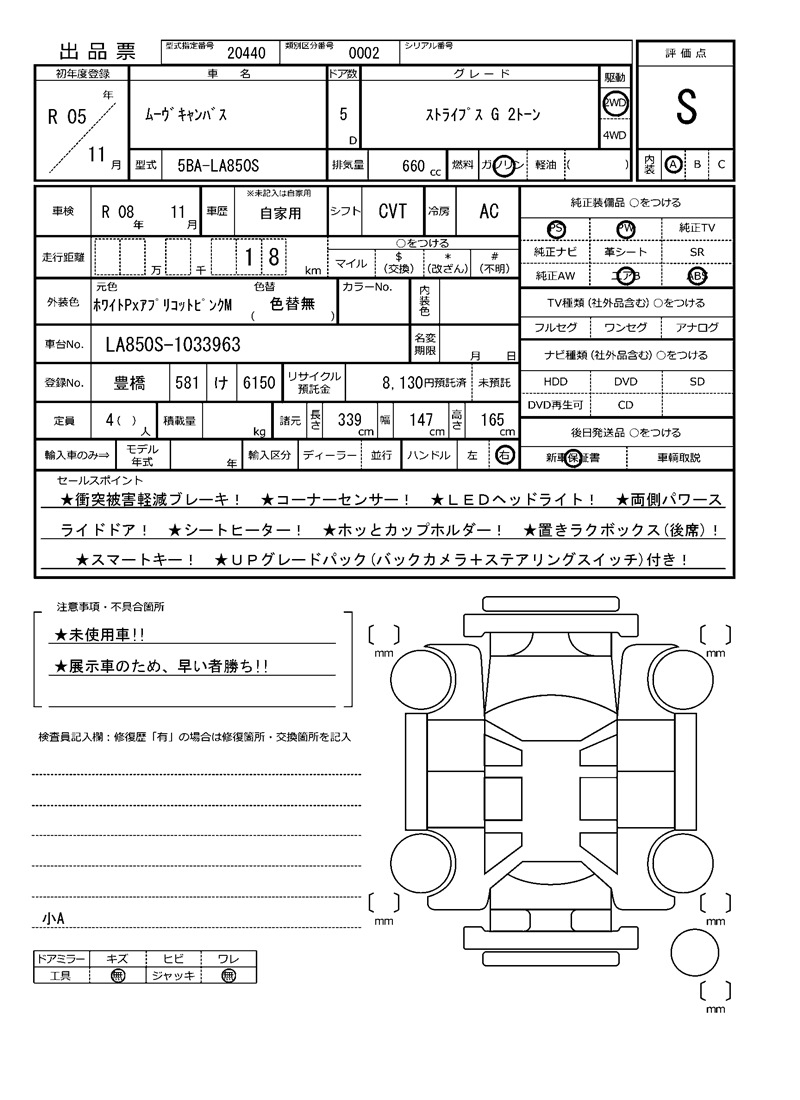 出品票 型式指定番号 20440 類別区分番号 0002 シリアル番号
評価点
初年度登録 車名 ドア数 グレード 駆動
R 05 年 11 月 ムーヴキャンバス 5 D ストライプス G 2トーン 2WD 4WD
S
型式 5BA-LA850S 排気量 660 cc 燃料 ガソリン 軽油 ( )
内装 A B C
車検 R 08 年 11 月 車歴 ※未記入は自家用 自家用 シフト CVT 冷房 AC
純正装備品 ○をつける
PS PW 純正TV
走行距離 万 千 1 8 km ○をつける
マイル $ (交換) * (改ざん) # (不明)
純正ナビ 革シート SR
純正AW エアB ABS
外装色 元色 ホワイトPxアプリコットピンクM 色替 ( 色替無 ) カラーNo. 内装色
TV種類 (社外品含む) ○をつける
フルセグ ワンセグ アナログ
車台No. LA850S-1033963 名変期限 月 日
ナビ種類 (社外品含む) ○をつける
登録No. 豊橋 581 け 6150 リサイクル預託金 8,130 円預託済 未預託
HDD DVD SD
DVD再生可 CD
定員 4 ( ) 人 積載量 kg 諸元 長さ 339 cm 幅 147 cm 高さ 165 cm
後日発送品 ○をつける
輸入車のみ⇒ モデル年式 年 輸入区分 ディーラー 並行 ハンドル 左 右
新車保証書 車輌取説
セールスポイント
★衝突被害軽減ブレーキ! ★コーナーセンサー! ★LEDヘッドライト! ★両側パワース
ライドドア! ★シートヒーター! ★ホッとカップホルダー! ★置きラクボックス(後席)!
★スマートキー! ★UPグレードパック(バックカメラ+ステアリングスイッチ)付き!
注意事項・不具合箇所
★未使用車!!
★展示車のため、早い者勝ち!!
検査員記入欄:修復歴「有」の場合は修復箇所・交換箇所を記入
小A
ドアミラー キズ ヒビ ワレ
工具 無 ジャッキ 無
mm mm
mm mm
mm